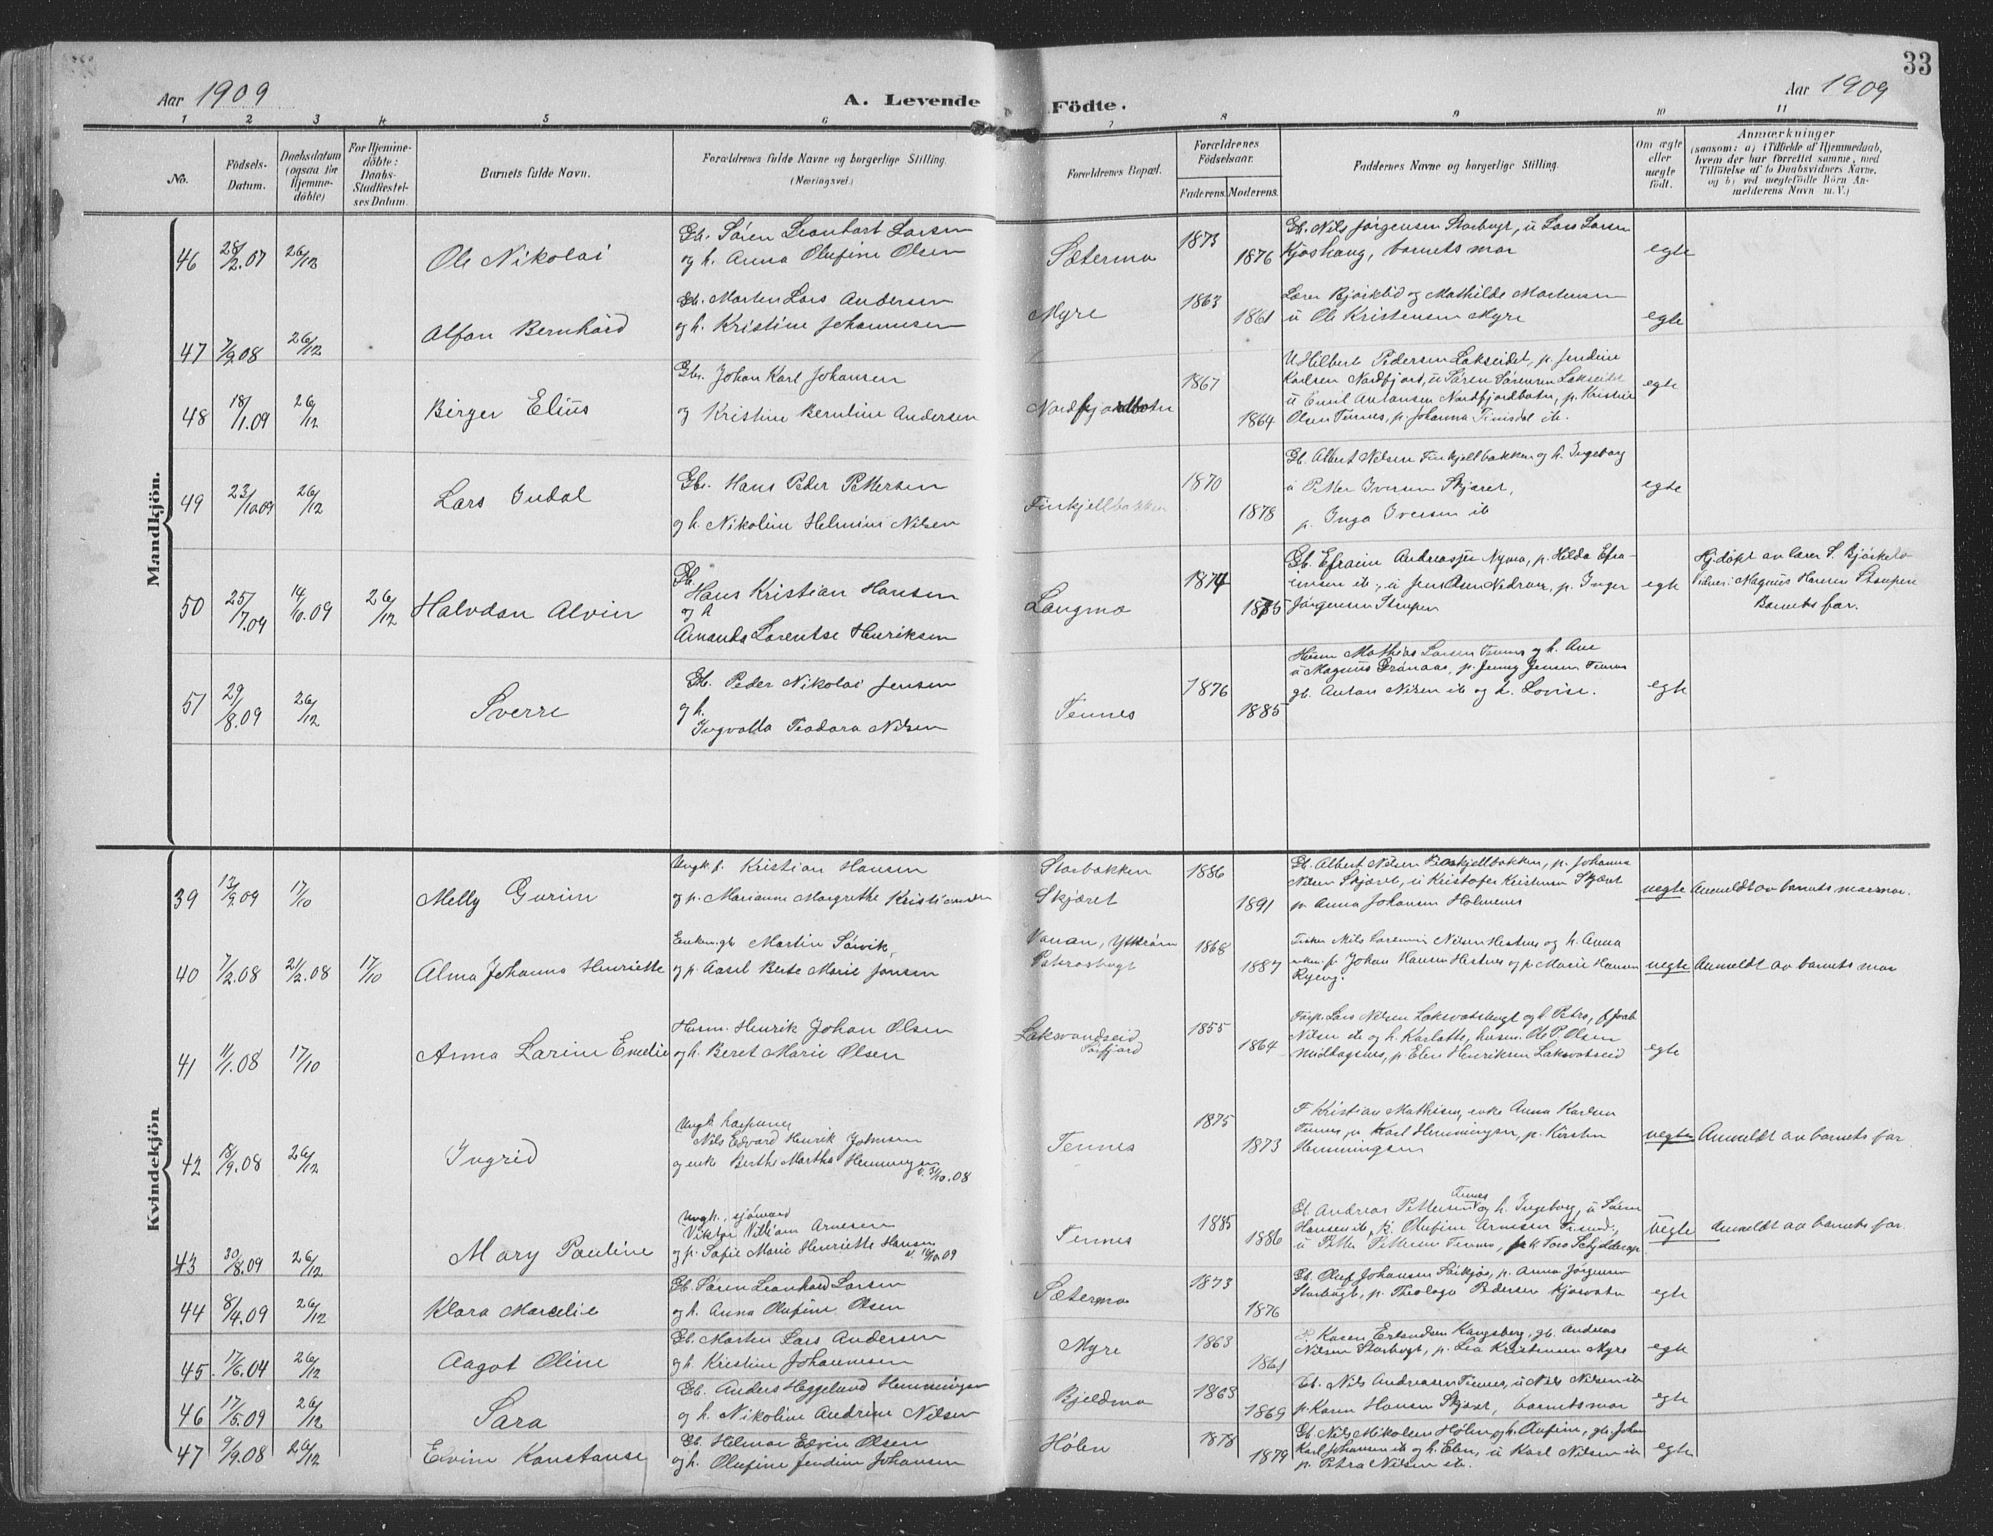 33
Aar 1909
A. Levende Födte.
Aar 1909
1 2 3 4 5 6 7 8 9 10 11
No.
Födsels-Datum.
Daabsdatum (ogsaa for Hjemmedöbte)
For Hjemmedöbte: Daabs-Stadfæstelses Datum.
Barnets fulde Navn.
Forældrenes fulde Navne og borgerlige Stilling.
(Næringsvei.)
Forældrenes Bopæl.
Forældrenes Födselsaar.
Faderens. Moderens.
Faddernes Navne og borgerlige Stilling.
Om ægte eller uægte födt.
Anmærkninger
(saasom: a) i Tilfælde af Hjemmedaab,
hvem der har forrettet samme, med
Tilföielse af to Daabsvidners Navne,
og b) ved uegtefödte Börn An-
melderens Navn m. V.)
Mandkjön.
46 28/2.07 26/12 Ole Nikolai
Gb. Sören Leonhart Larsen
og h. Anna Olufine Olsen
Sætermo 1873 1876
Gb. Nils Jörgensen Storbugt, u Lars Larsen
Kjoshaug, barnets mor
egte
47 7/9.08 26/12 Alfon Bernhard
Gb. Morten Lars Andersen
og h. Kristine Johannesen
Myre 1863 1861
Lærer Bjorklid og Mathilde Mortensen
u Ole Kristensen Myre
egte
48 18/1.09 26/12 Birger Elius
Gbr. Johan Karl Johansen
og Kristine Berntine Andersen
Nordfjordbotn 1867 1864
U Hilbert Pedersen Lakseidet, p. Jendine
Karlsen Nordfjord, u Sören Sörensen Lakseidet
u Emil Antonsen Nordfjordbotn, p. Kristine
Olsen Tennes, p. Johanna ib.
egte
49 23/10 09 26/12 Lars Indal
Gbr. Hans Peder Pettersen
og h. Nikoline Helmine Nilsen
Finkjellbakken 1870 1878
Gb. Albert Nilsen Finkjellbakken og h. Ingeborg
u Petter Iversen Skjæret,
p. Inga Iversen ib
egte
50 25/7.09 14/10.09 26/12 Halvdan Alvin
Gb.
Hans Kristian Hansen
og h
Amanda Lorentse Henriksen
Langmo 1874 1885
Gb. Efraim Andreasen Nymo, p. Hilda Efra-
imsen ib., u Jens Nedrevær, p. Inger
Jörgensen Strupen
egte
Hj.döpt av lærer S. Bjorkli
Vidner: Magnus Hansen Strupen
Barnets far.
51 29/8.09 26/12 Sverre
Gb. Peder Nikolai Jensen
og h.
Ingvalda Teodora Nilsen
Tennes 1876 1885
Husm Mathias Larsen Tennes og h. Ane
u Magnus Grönaas, p. Jenny Jensen Tennes
gb. Anton Nilsen ib og h. Lovise.
egte
Kvindekjön
39 12/9.09 17/10 Melly Gurine
Ungk. f. Kristian Hansen
og p. Marianne Margrethe Kristiansen
Storbakken
Skjæret 1886 1891
Gb. Albert Nilsen Finkjellbakken, p. Johanna
Nilsen Skjæret, u Kristofer Kristensen Skjæret
p. Anna Johansen Holmenes
uegte Anmeldt av barnets mormor.
40 7/2.08 21/2.08 17/10 Alma Johanna Henriette
Enkem. gb. Martin Sörvik,
og p. Aasel Berte Marie Jensen
Vanan, Ytteröen
Petersbugt 1868 1887
Fisker Nils Nilsen Hestnes og h. Anna
p Johan Hansen Hestnes og p. Marie Hansen
uegte Anmeldt av barnets mor
41 11/1.08 17/10 Anna Larine Emelie
Husm. Henrik Johan Olsen
og h. Beret Marie Olsen
Laksvandseid
Sörfjord 1855 1864
Forp. Lars Nilsen Laksvatsbugt og h Petra, Jacob
Nilsen ib og h. Karlotte, husm. O. P. Olsen
p. Elen Henriksen Laksvatseid
egte
42 18/9.08 26/12 Ingrid
Ungk
Nils Edvard Henrik Johnsen
og enke Berthe Martha Hemmingsen
v. 31/10.08
Tennes 1875 1873
F Kristian Mathisen, enke Anna Karlsen
Tennes, u Karl Hemmingsen, p. Kirsten
Hemmingsen
uegte Anmeldt av barnets far
43 30/8.09 26/12 Mary Pauline
Ungk., sjömand
Viktor William Arnesen
og p. Sofie Marie Henriette Hansen
v. 10.09
Tennes 1885 1886
Gb. Andreas Pettersen Tennes og h. Ingeborg, u Sören
Hansen ib, p. Olufine Arnesen
u Petter Pettersen Tennes, Lars Schjelderup
uegte anmeldt av barnets far
44 8/4.09 26/12 Klara Marcelie
Gb. Sören Leonhard Larsen
og h. Anna Olufine Olsen
Sætermo 1873 1876
Gb. Oluf Johansen p. Anna Jörgensen
Storbugt, p. Theologa Pedersen Kjosvatn
egte
45 17/6.04 26/12 Aagot Oline
Gb. Morten Lars Andersen
og h. Kristine Johannesen
Myre 1863 1861
p. Karen Erlandsen Kangsberg, gb. Andreas
Nilsen Storbugt, p. Lea Kristensen Myre
egte
46 17/5.09 26/12 Sara
Gb. Anders Heggelund Hemmingsen
og h. Nikoline Andrine Nilsen
Bjeldmo 1863 1869
Gb. Nils Andreasen Tennes, u Nils Nilsen ib
p. Karen Hansen Skjæret, barnets mor
egte
47 9/9.08 26/12 Elvine Konstanse
Gb. Hilmar Edvin Olsen
og h. Olufine Jendine Johansen
Hölen 1878 1879
Gb. Nils Mikolsen Hölen og h. Olufine, gb. Johan
Karl Johansen ib og h. Elen, u Karl Nilsen ib
p. Petra Nilsen ib.
egte